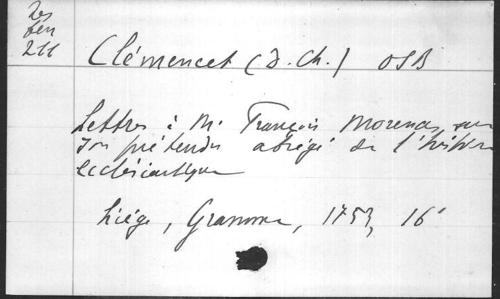 Res
fen
211
Clémencet (D. Ch.) OSB
Lettres à M. François Morenas, sur
son prétendu abrégé de l'histoire
ecclésiastique
Liége, Gramme, 1753, 16°